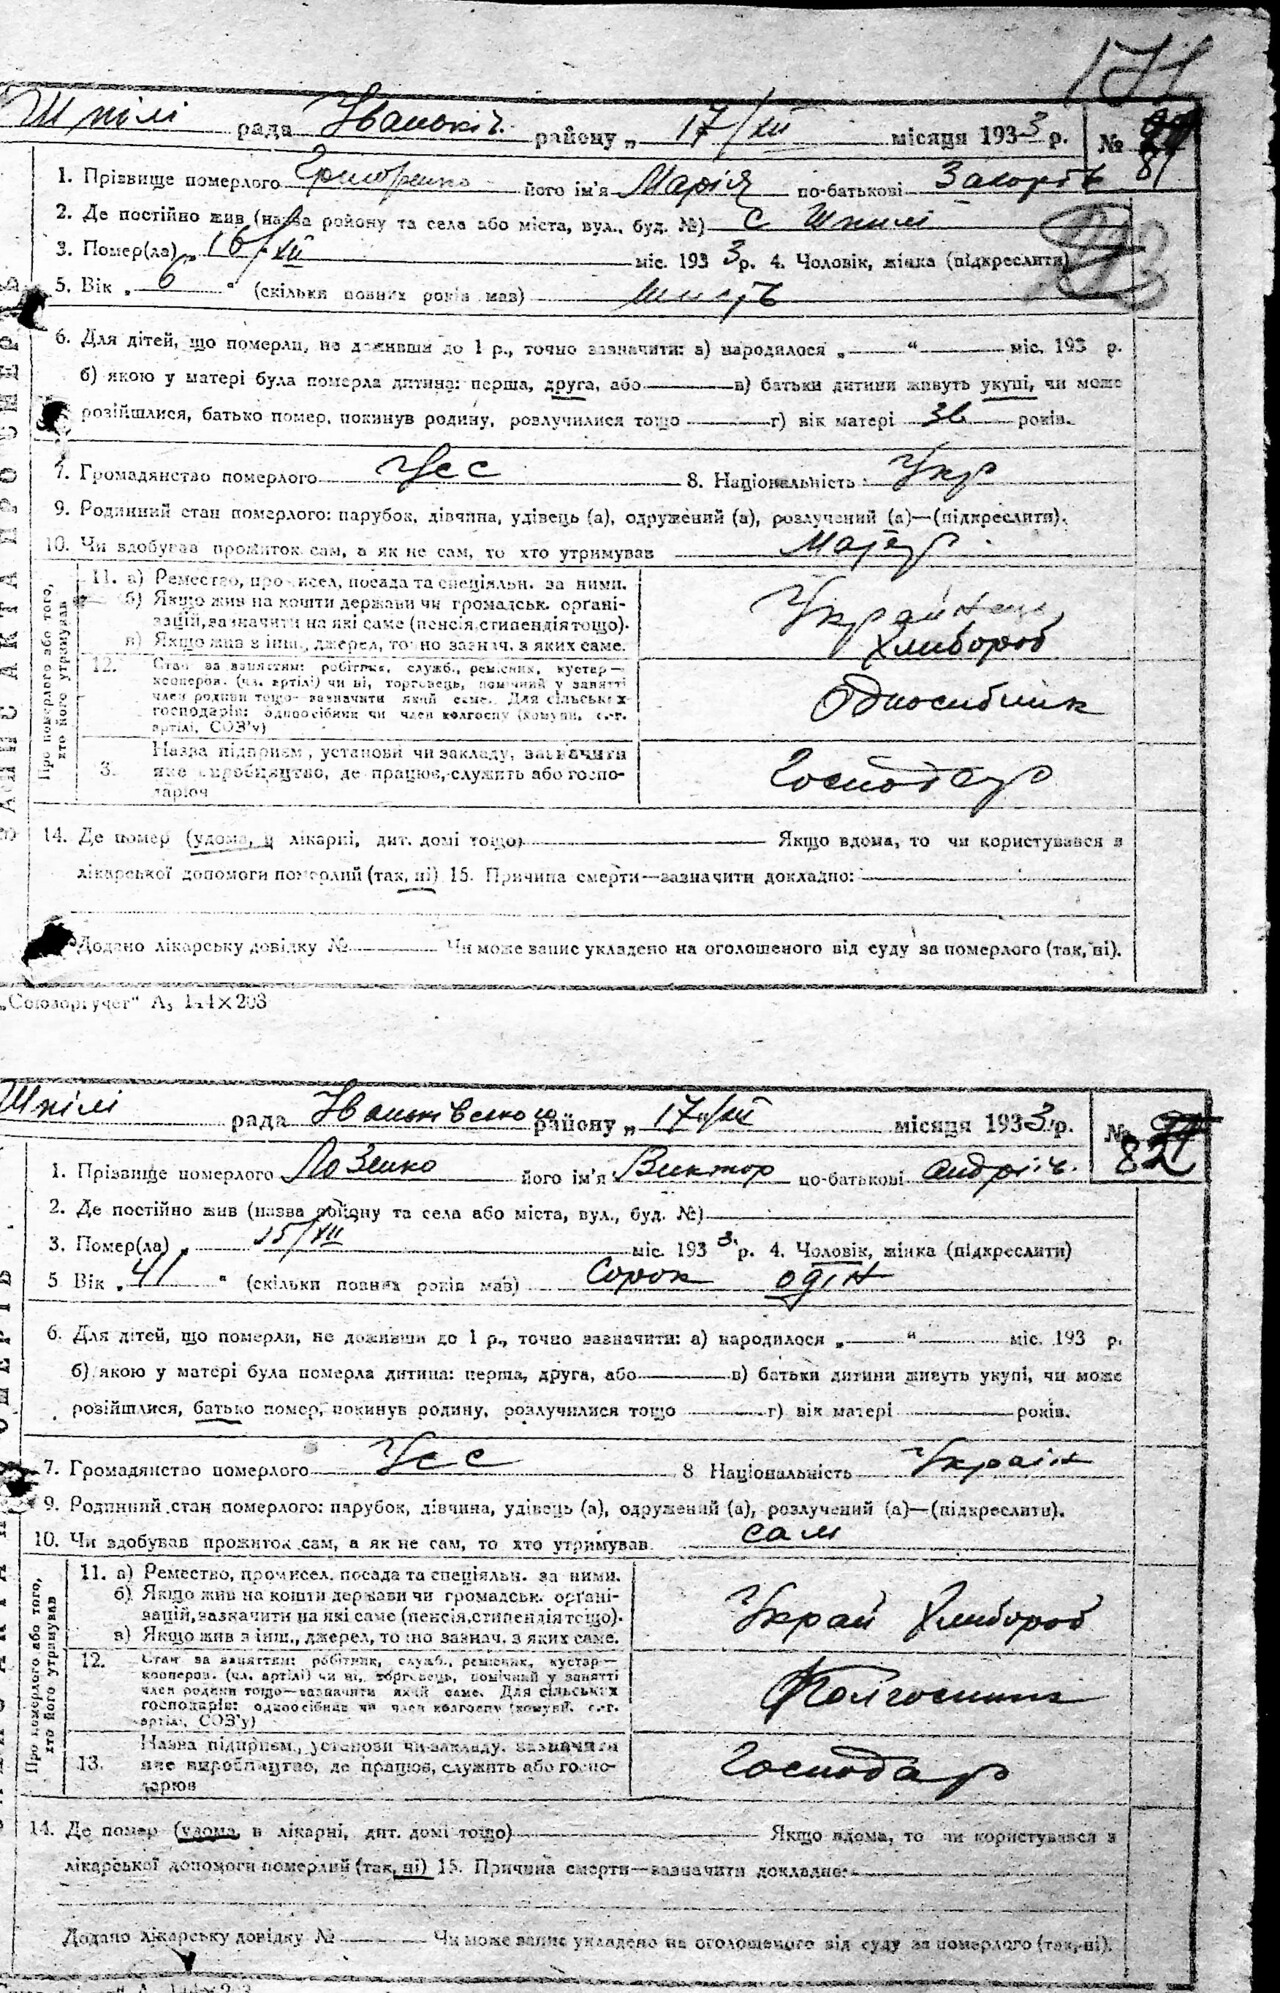 171
Шпілі рада Іваньків. району „ 17/XII місяця 1933 р. № 81
1. Прізвище померлого Григоренко його ім'я Марія по-батькові Захорів
2. Де постійно жив (назва району та села або міста, вул., буд. №) с Шпилі
3. Помер(ла) „ 16/XII міс. 1933 р. 4. Чоловік, жінка (підкреслити)
5. Вік „ 6 “ (скільки повних років мав) шість
6. Для дітей, що померли, не доживши до 1 р., точно зазначити: а) народилося „ “ міс. 193 р.
б) якою у матері була померла дитина: перша, друга, або в) батьки дитини живуть укупі, чи може
розійшлися, батько помер, покинув родину, розлучилися тощо г) вік матері років.
7. Громадянство померлого Усс 8. Національність Укр
9. Родинний стан померлого: парубок, дівчина, удівець (а), одружений (а), розлучений (а)—(підкреслити).
10. Чи здобував прожиток сам, а як не сам, то хто утримував
Про померлого або того, хто його утримував
11. а) Ремество, промисел, посада та спеціяльн. за ними.
б) Якщо жив на кошти держави чи громадськ. органі-
зацій, зазначити на які саме (пенсія, стипендія тощо).
в) Якщо жив з інш., джерел, точно зазнач. з яких саме.
Хлибороб
12. Стан за заняттям: робітник, служб., ремісник, кустар—
кооперов. (чл. артілі) чи ні, торговець, помічний у занятті
член родини тощо—зазначити який саме. Для сільських
господарів: одноосібник чи член колгоспу (комуни, с.-г.
артілі, СОЗ'у)
Односибник
3. Назва підприєм., установи чи закладу, зазначити
яке виробництво, де працює, служить або госпо-
дарює
Господар
14. Де помер (удома, в лікарні, дит. домі тощо) Якщо вдома, то чи користувався з
лікарської допомоги померлий (так, ні) 15. Причина смерти—зазначити докладно:
Додано лікарську довідку № Чи може запис укладено на оголошеного від суду за померлого (так, ні).
„Союзоргучет“ А₅ 144×203
Шпілі рада Іваньківського району „ 17/XII місяця 1933 р. № 82
1. Прізвище померлого Лозенко його ім'я Виктор по-батькові Андріїч.
2. Де постійно жив (назва району та села або міста, вул., буд. №)
3. Помер(ла) „ 15/XII міс. 1933 р. 4. Чоловік, жінка (підкреслити)
5 Вік „ 41 “ (скільки повних років мав) Сорок один
6. Для дітей, що померли, не доживши до 1 р., точно зазначити: а) народилося „ “ міс. 193 р.
б) якою у матері була померла дитина: перша, друга, або в) батьки дитини живуть укупі, чи може
розійшлися, батько помер, покинув родину, розлучилися тощо г) вік матері років.
7. Громадянство померлого Усс 8 Національність Украін
9. Родинний стан померлого: парубок, дівчина, удівець (а), одружений (а), розлучений (а)—(підкреслити).
10. Чи здобував прожиток сам, а як не сам, то хто утримував сам
Про померлого або того, хто його утримував
11. а) Ремество, промисел, посада та спеціяльн. за ними.
б) Якщо жив на кошти держави чи громадськ. органі-
зацій, зазначити на які саме (пенсія, стипендія тощо).
в) Якщо жив з інш., джерел, точно зазнач. з яких саме.
Украй Хлибороб
12. Стан за заняттям: робітник, служб., ремісник, кустар—
кооперов. (чл. артілі) чи ні, торговець, помічний у занятті
член родини тощо—зазначити який саме. Для сільських
господарів: одноосібник чи член колгоспу (комуни, с.-г.
артілі, СОЗ'у)
Колгоспник
13. Назва підприєм., установи чи закладу, зазначити
яке виробництво, де працює, служить або госпо-
дарює
Господар
14. Де помер (удома, в лікарні, дит. домі тощо) Якщо вдома, то чи користувався з
лікарської допомоги померлий (так, ні) 15. Причина смерти—зазначити докладно:
Додано лікарську довідку № Чи може запис укладено на оголошеного від суду за померлого (так, ні).